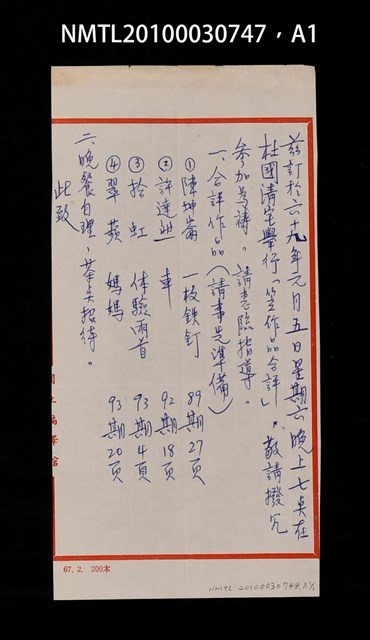 NMTL20100030747，A1
茲訂於六十九年元月五日星期六晚上七點在
杜國清宅舉行「笠作品合評」，敬請撥冗
參加為禱。請惠臨指導。
一、合評作品（請事先準備）
①陳坤崙 一枚鉄釘 89期27頁
②許達然 車 92期18頁
③拾虹 体驗兩首 93期4頁
④翠蘋 媽媽 93期20頁
二、晚餐自理，茶点招待。
此致
67. 2. 200本